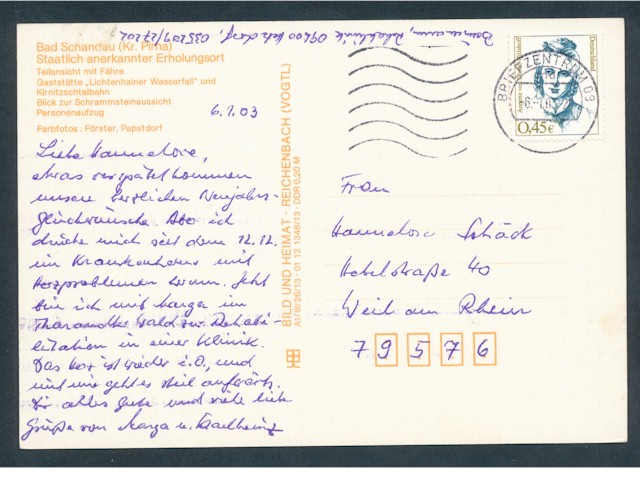 Baumann, Rehaklinik 09600 Hetzdorf, 035209/27202
Bad Schandau (Kr. Pirna)
Staatlich anerkannter Erholungsort
Teilansicht mit Fähre
Gaststätte „Lichtenhainer Wasserfall" und
Kirnitzschtalbahn
Blick zur Schrammsteinaussicht
Personenaufzug
Farbfotos: Förster, Papstdorf
6.1.03
Liebe Hannelore,
etwas verspätet kommen
unsere herzlichen Neujahrs-
glückwünsche. Aber ich
drücke mich seit dem 12.12.
im Krankenhaus mit
Herzproblemen herum. Jetzt
bin ich mit Marga im
Tharandter Wald zur Rehabi-
litation in einer Klinik.
Das Herz ist wieder i.O., und
mit mir geht es steil aufwärts.
Dir alles Gute und viele liebe
Grüße von Marga u. Karlheinz
BILD UND HEIMAT · REICHENBACH (VOGTL)
A1/III/26/13 · 01 12 1348/13 · DDR 0,20 M
Deutschland
0,45€
BRIEFZENTRUM 09
Frau
Hannelore Schäck
Hebelstraße 40
Weil am Rhein
79576